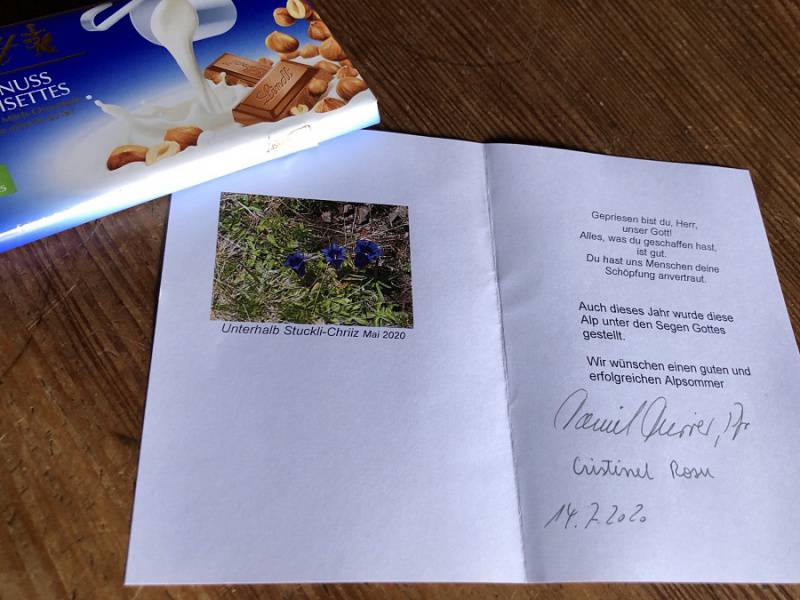 NUSS
ISETTES
Milch-Chocolade
Lindt
Unterhalb Stuckli-Chriiz Mai 2020
Gepriesen bist du, Herr,
unser Gott!
Alles, was du geschaffen hast,
ist gut.
Du hast uns Menschen deine
Schöpfung anvertraut.
Auch dieses Jahr wurde diese
Alp unter den Segen Gottes
gestellt.
Wir wünschen einen guten und
erfolgreichen Alpsommer
Cristinel Rosu
14.7.2020